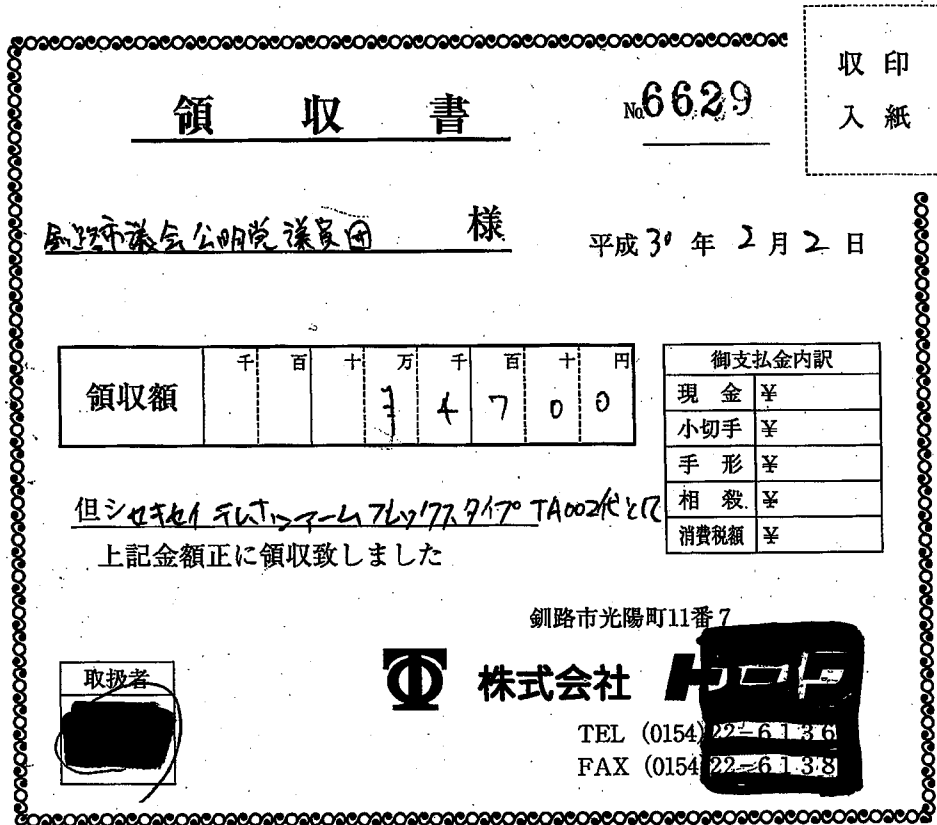 収印
入紙
領収書
№6629
釧路市議会公明党議員団 様
平成30年2月2日
千 百 十 万 千 百 十 円
領収額 4 7 0 0
御支払金内訳
現金 ¥
小切手 ¥
手形 ¥
相殺 ¥
消費税額 ¥
但シ セキセイ テレホンアームフレックスタイプ TA002代として
上記金額正に領収致しました
釧路市光陽町11番7
株式会社
TEL (0154)22-6136
FAX (0154)22-6138
取扱者